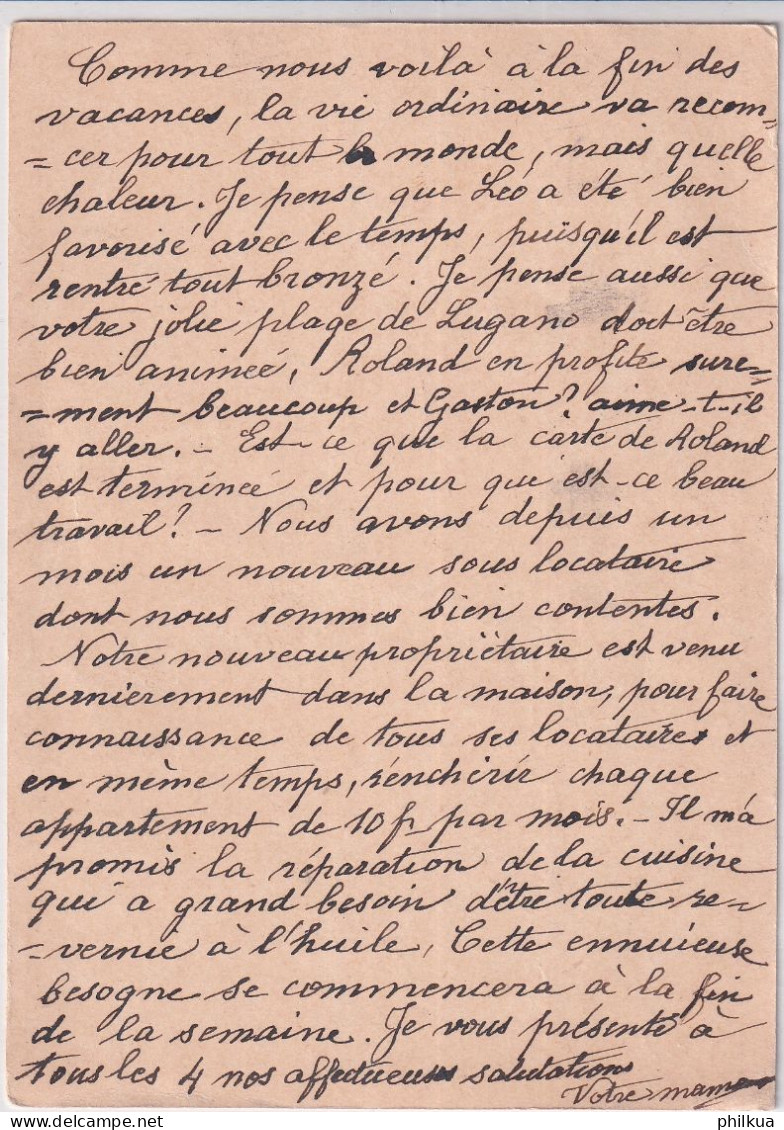 Comme nous voilà à la fin des
vacances, la vie ordinaire va recom=
=cer pour tout le monde, mais quelle
chaleur. Je pense que Léo a été bien
favorisé avec le temps, puisqu'il est
rentré tout bronzé. Je pense aussi que
votre jolie plage de Lugano doit être
bien animeé, Roland en profite sure=
=ment beaucoup et Gaston? aime-t-il
y aller. - Est-ce que la carte de Roland
est termineé et pour qui est-ce beau
travail? - Nous avons depuis un
mois un nouveau sous locataire
dont nous sommes bien contentes.
Notre nouveau propriétaire est venu
dernierement dans la maison, pour faire
connaissance de tous ses locataires et
en même temps, rénchérir chaque
appartement de 10 f. par mois. - Il m'a
promis la réparation de la cuisine
qui a grand besoin d'être toute re=
=vernie à l'huile, Cette ennuieuse
besogne se commencera à la fin
de la semaine. Je vous présente à
tous les 4 nos affectueuses salutations
Votre maman
philkua.com